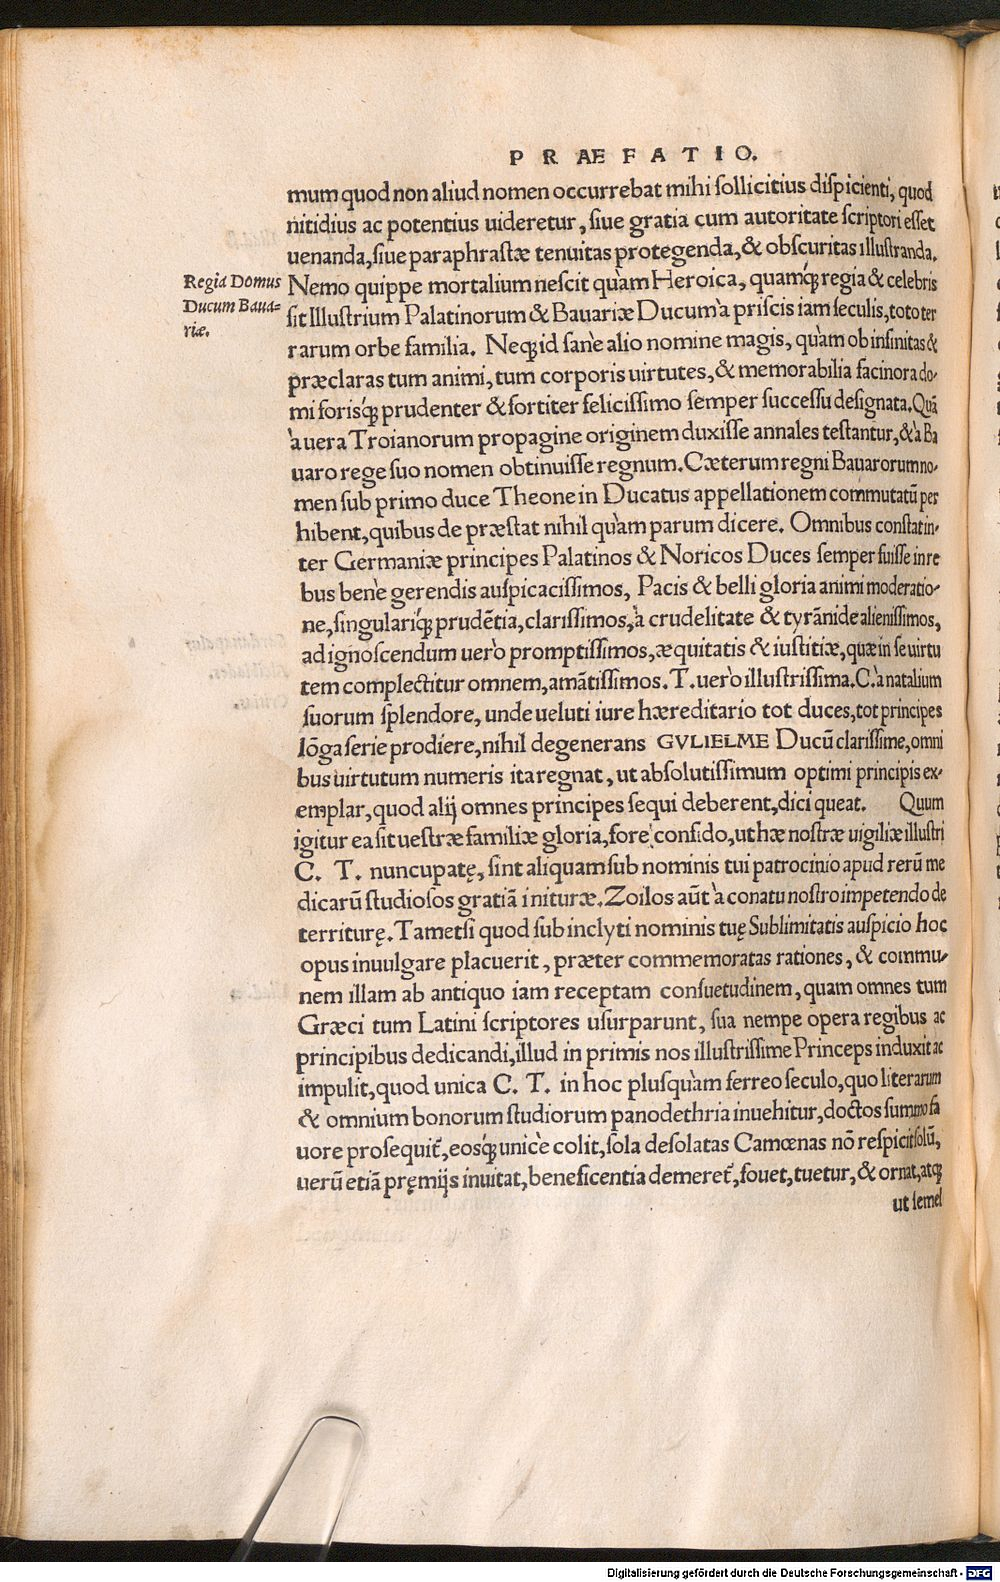 PRAEFATIO.
mum quod non aliud nomen occurrebat mihi sollicitius dispicienti, quod
nitidius ac potentius uideretur, siue gratia cum autoritate scriptori esset
uenanda, siue paraphrastæ tenuitas protegenda, & obscuritas illustranda.
Regia Domus
Ducum Baua-
riæ.
Nemo quippe mortalium nescit quàm Heroica, quamq́; regia & celebris
sit Illustrium Palatinorum & Bauariæ Ducum à priscis iam seculis, toto ter
rarum orbe familia. Neq; id sanè alio nomine magis, quàm ob infinitas &
præclaras tum animi, tum corporis uirtutes, & memorabilia facinora do-
mi forisq́; prudenter & fortiter felicissimo semper successu designata. Quã
à uera Troianorum propagine originem duxisse annales testantur, & à Ba
uaro rege suo nomen obtinuisse regnum. Cæterum regni Bauarorum no-
men sub primo duce Theone in Ducatus appellationem commutatũ per
hibent, quibus de præstat nihil quàm parum dicere. Omnibus constat in-
ter Germaniæ principes Palatinos & Noricos Duces semper fuisse in re
bus benè gerendis auspicacissimos, Pacis & belli gloria animi moderatio-
ne, singulariq́; prudẽtia, clarissimos, à crudelitate & tyrãnide alienissimos,
ad ignoscendum uerò promptissimos, æquitatis & iustitiæ, quæ in se uirtu
tem complectitur omnem, amãtissimos. T. uerò illustrissima. C. à natalium
suorum splendore, unde ueluti iure hæreditario tot duces, tot principes
lõga serie prodiere, nihil degenerans GVLIELME Ducũ clarissime, omni
bus uirtutum numeris ita regnat, ut absolutissimum optimi principis ex-
emplar, quod alij omnes principes sequi deberent, dici queat. Quum
igitur ea sit uestræ familiæ gloria, fore confido, ut hæ nostræ uigiliæ illustri
C. T. nuncupatę, sint aliquam sub nominis tui patrocinio apud rerũ me
dicarũ studiosos gratiã inituræ. Zoilos aũt à conatu nostro impetendo de
territurę. Tametsi quod sub inclyti nominis tuę Sublimitatis auspicio hoc
opus inuulgare placuerit, præter commemoratas rationes, & commu-
nem illam ab antiquo iam receptam consuetudinem, quam omnes tum
Græci tum Latini scriptores usurparunt, sua nempe opera regibus ac
principibus dedicandi, illud in primis nos illustrissime Princeps induxit ac
impulit, quod unica C. T. in hoc plusquàm ferreo seculo, quo literarum
& omnium bonorum studiorum panodethria inuehitur, doctos summo fa
uore prosequit̃, eosq́; unicè colit, sola desolatas Camœnas nõ respicit solũ,
uerũ etiã pręmijs inuitat, beneficentia demeret̃, fouet, tuetur, & ornat, atq;
ut semel
Digitalisierung gefördert durch die Deutsche Forschungsgemeinschaft - DFG